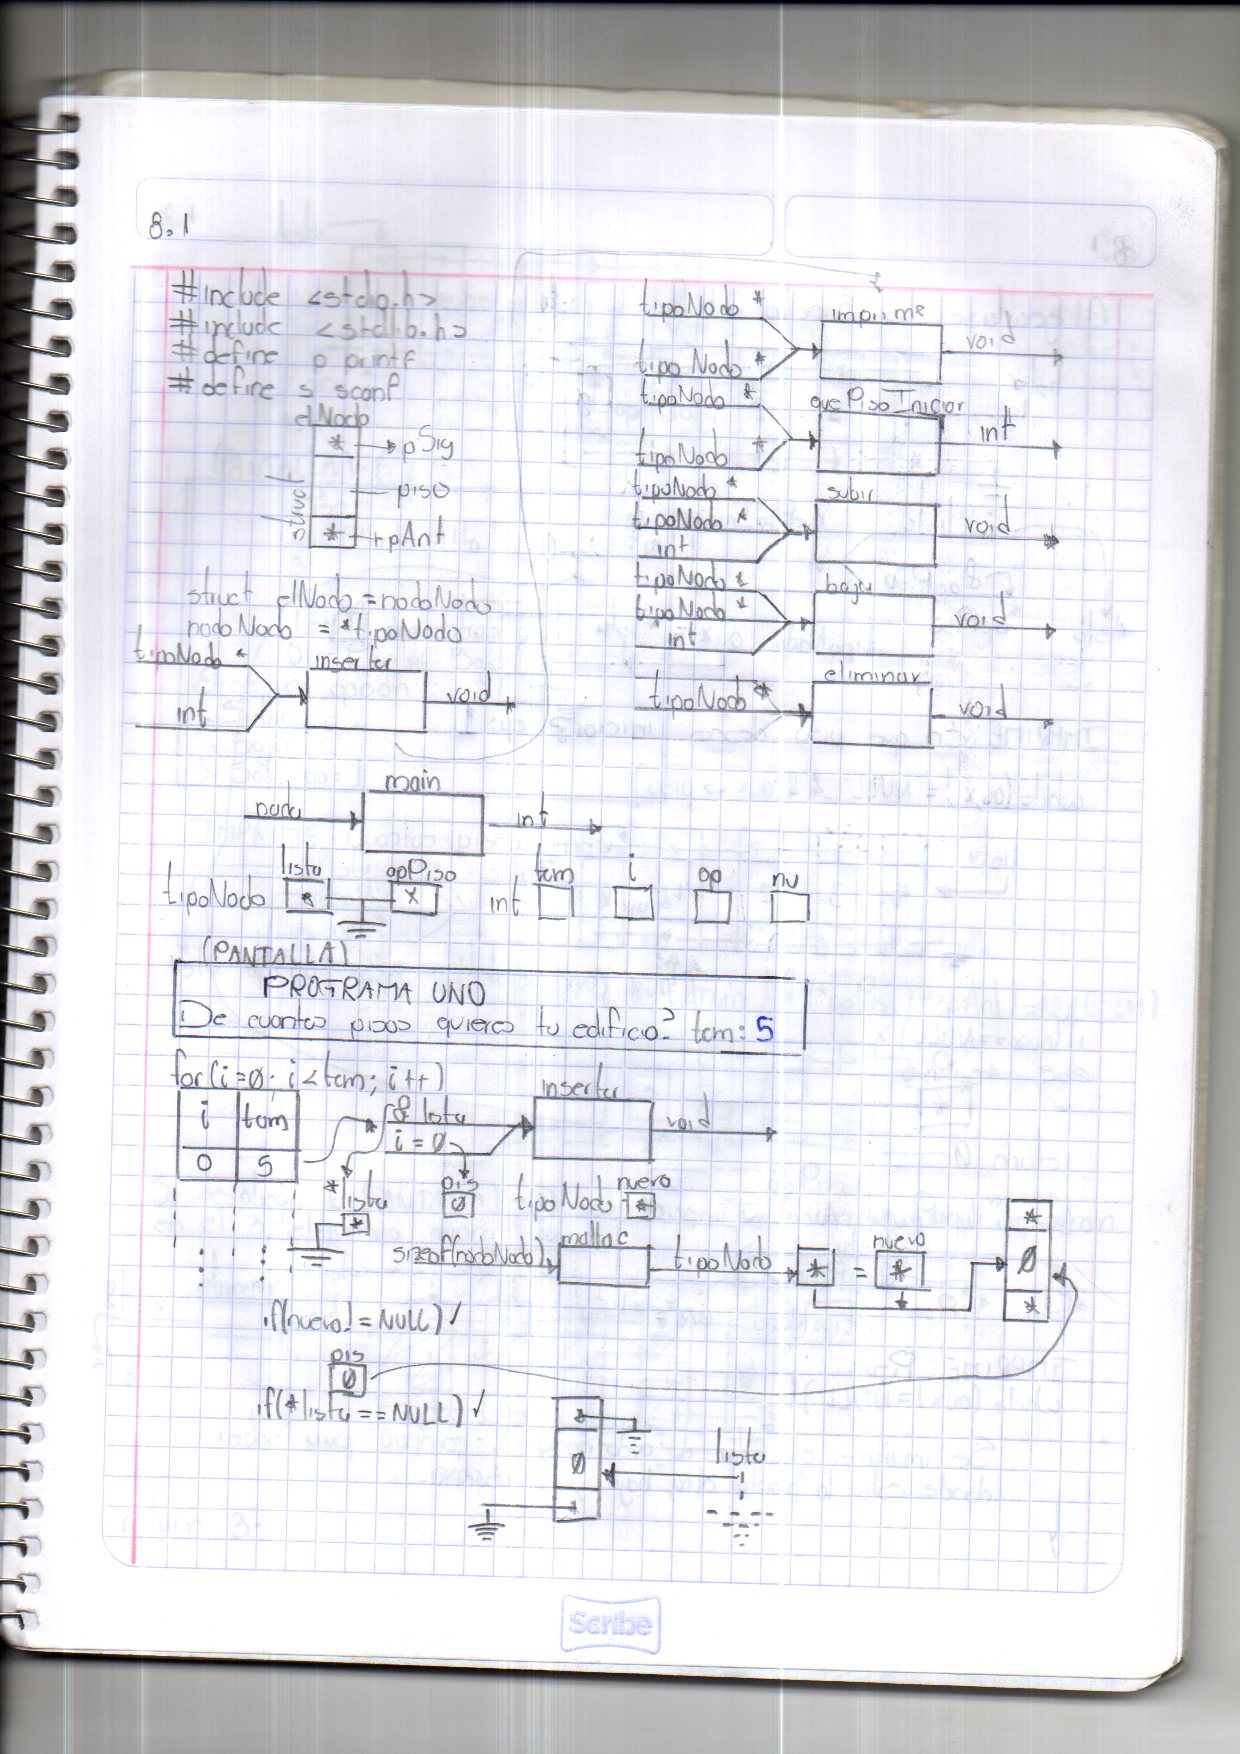 8.1
#include <stdio.h>
#include <stdlib.h>
#define p printf
#define s scanf
elNodo
struct
* pSig
piso
* pAnt
struct elNodo = nodoNodo
nodoNodo = *tipoNodo
tipoNodo *
int
insertar
void
tipoNodo *
tipoNodo *
imprime
void
tipoNodo *
tipoNodo *
quePisoIniciar
int
tipoNodo *
tipoNodo *
int
subir
void
tipoNodo *
tipoNodo *
int
bajar
void
tipoNodo *
eliminar
void
nada
main
int
tipoNodo
lista
*
apPiso
*
int
tam
i
op
nu
(PANTALLA)
PROGRAMA UNO
De cuantos pisos quieres tu edificio? tam: 5
for(i=0; i<tam; i++)
i tam
0 5
& lista
i = 0
insertar
void
* lista
*
pis
0
tipoNodo
nuevo
*
sizeof(nodoNodo)
malloc
tipoNodo
* =
nuevo
*
*
0
*
if(nuevo!=NULL) ✓
pis
0
if(*lista==NULL) ✓
*
0
*
lista
Scribe